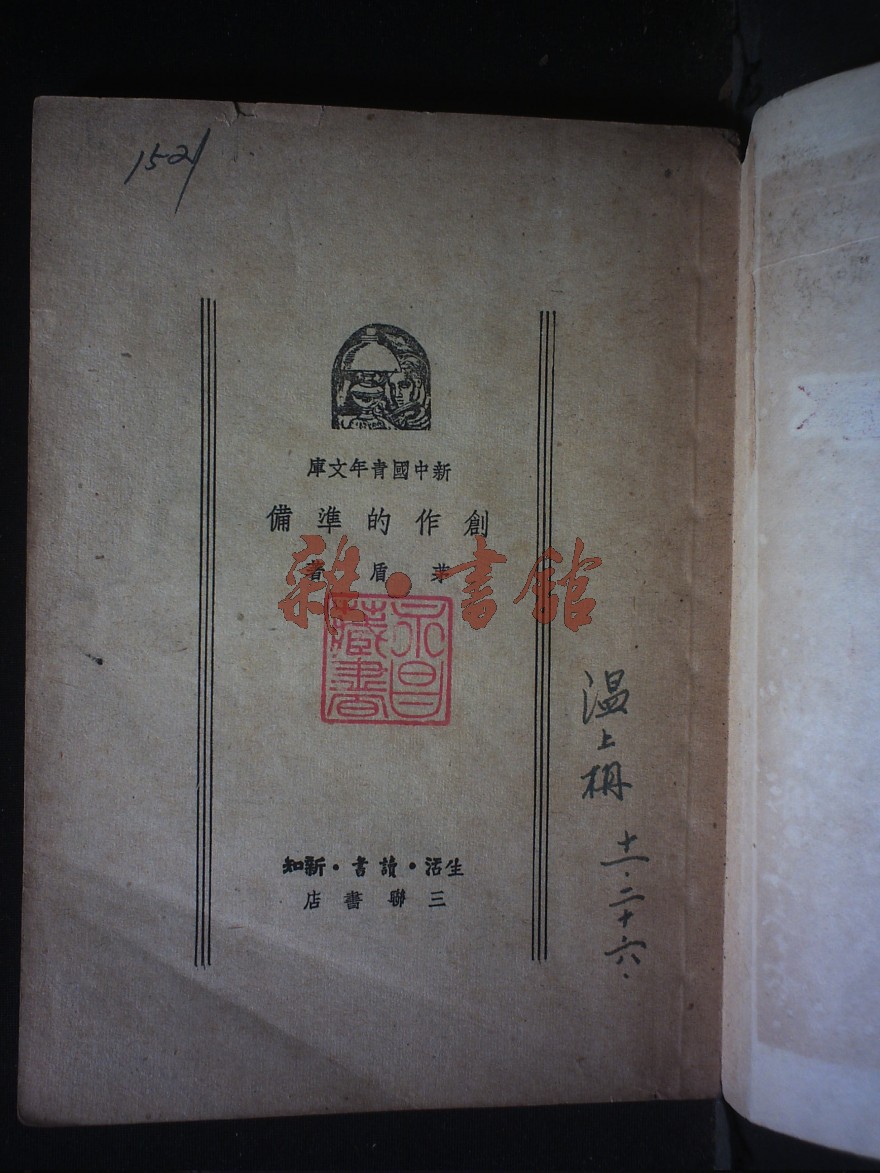 1521
新中國青年文庫
創作的準備
茅盾著
雜·書館
藏書
生活·讀書·新知
三聯書店
温上
十一·二十六·